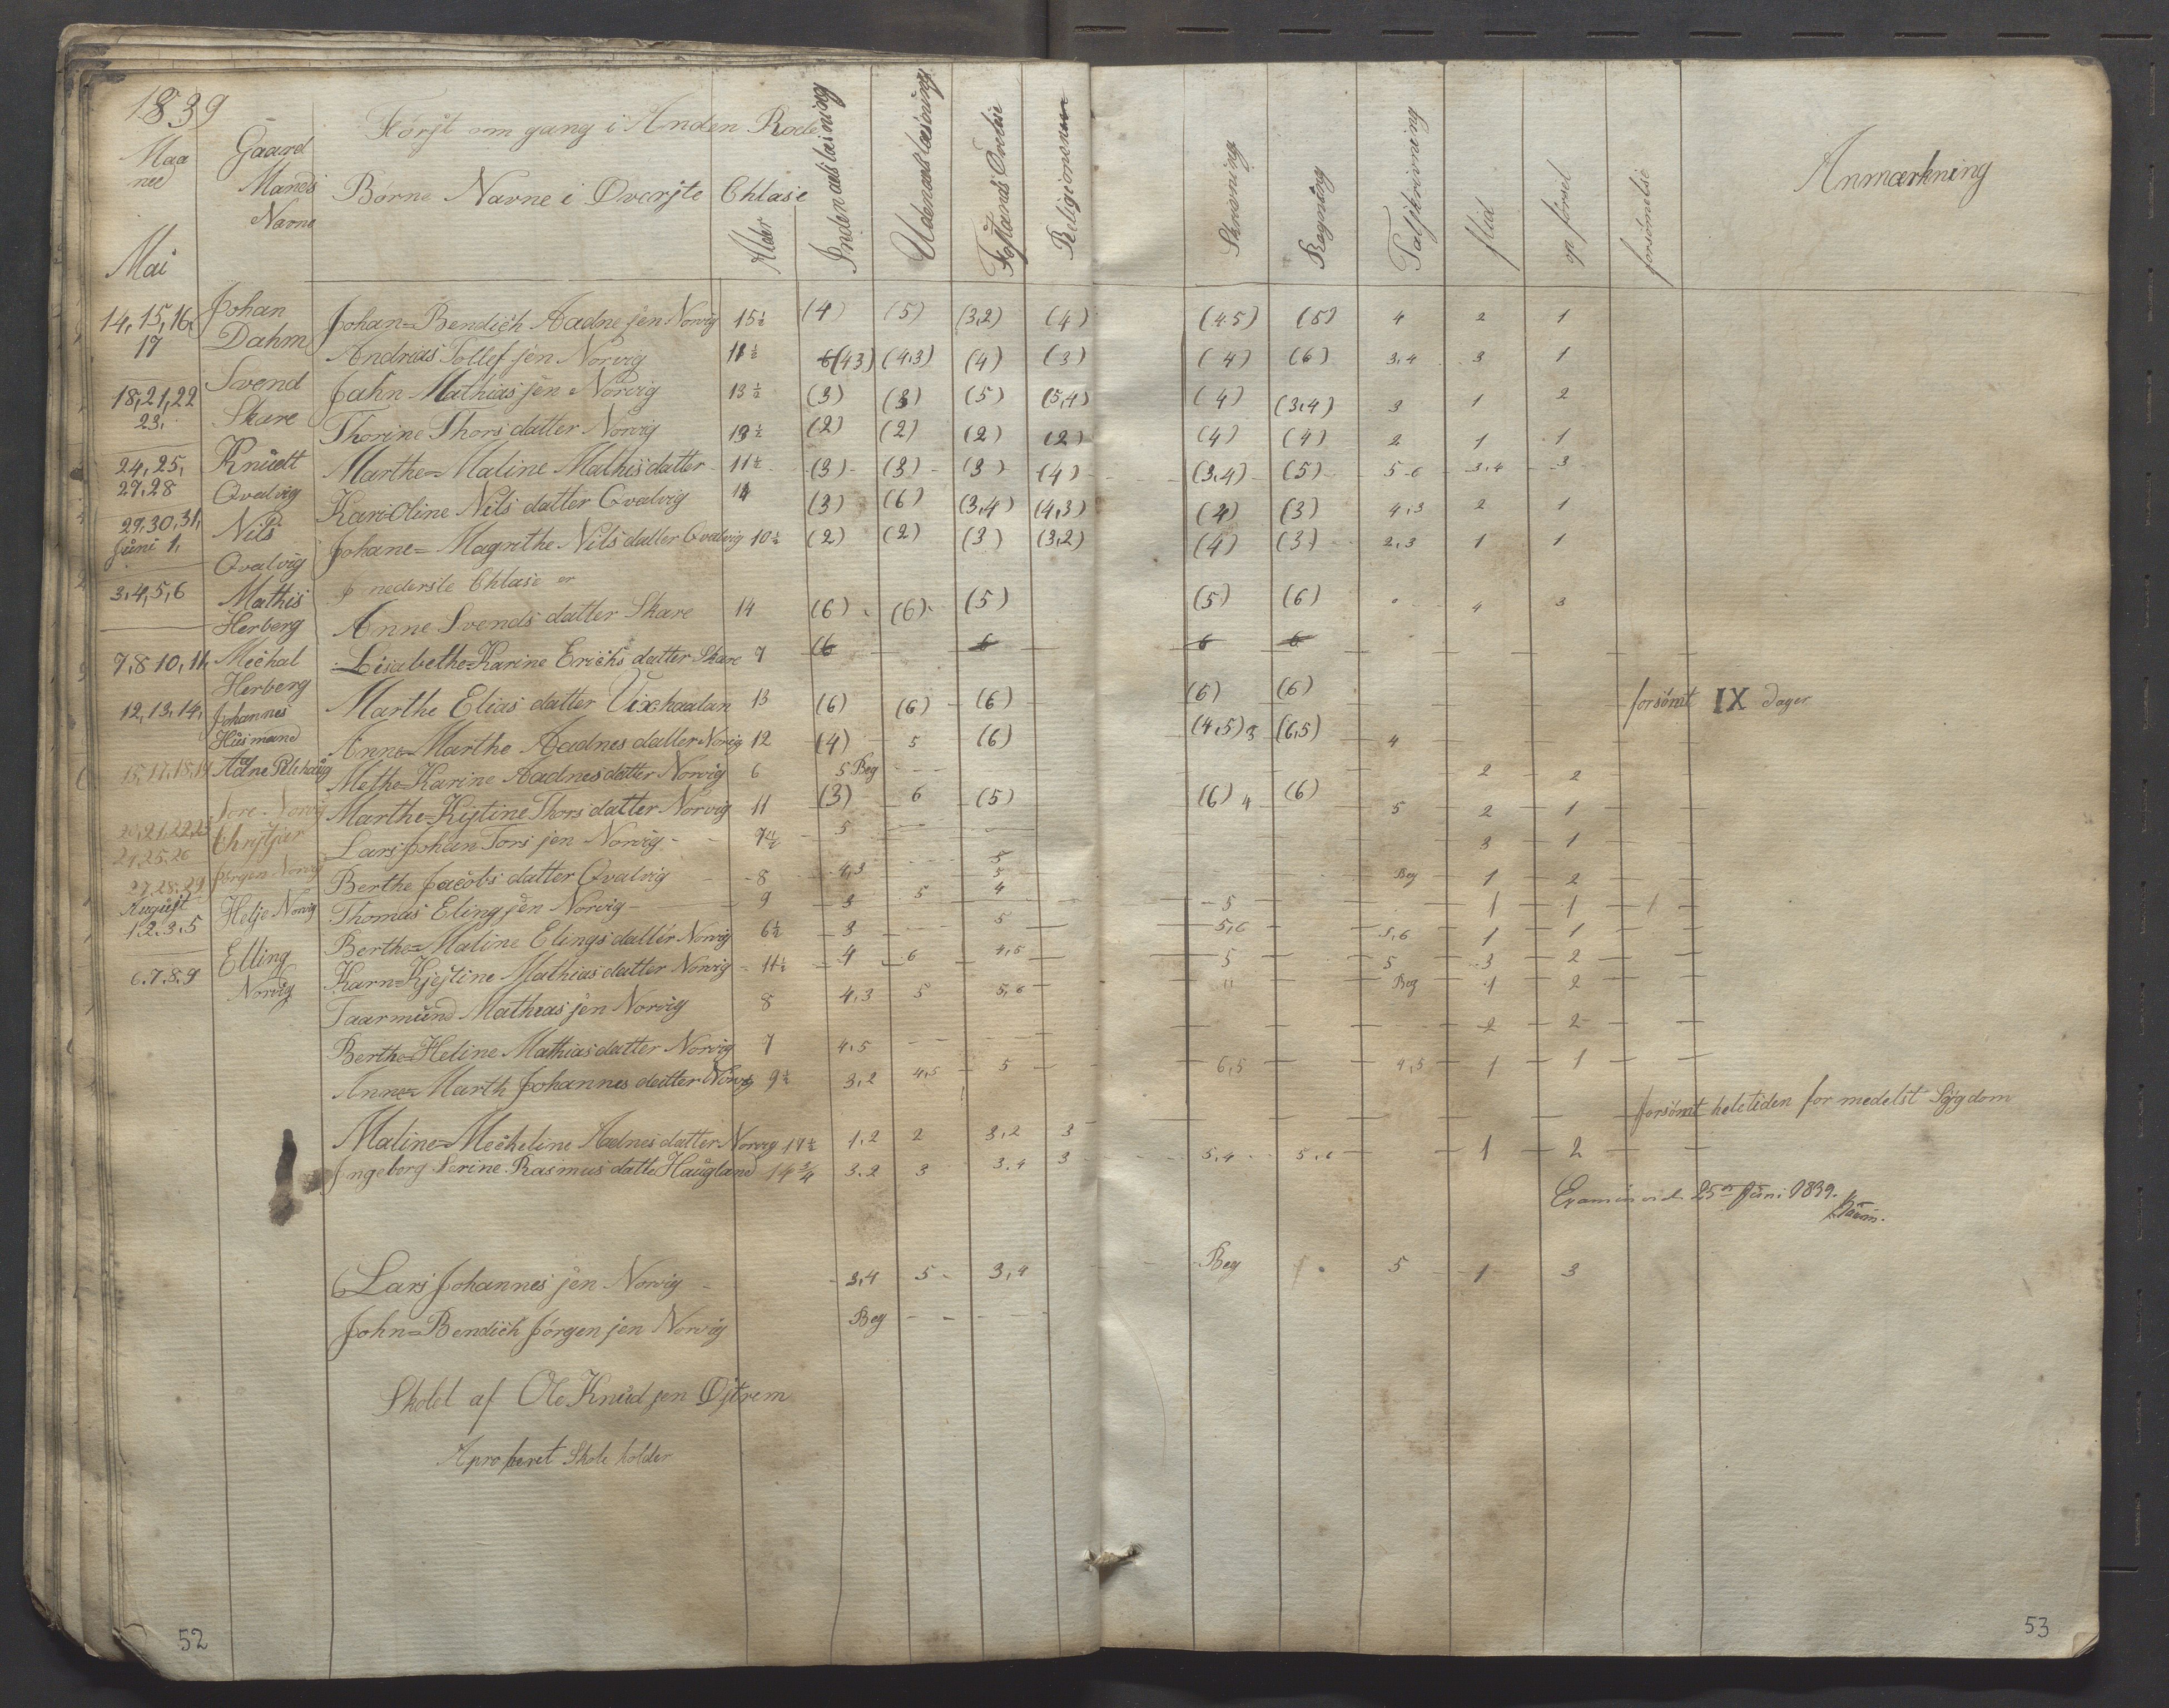 1839
Først om gang i Anden Rode
Maa
ned
Gaard
Mands
Navne
Børne Navne i Øverste Chlase
Alder
Indenadslæsning
Udenadslæsning
Religionen
Skrivning
Regning
Taljkrivning
flid
opførsel
forsømelse
Anmærkning
Mai
14, 15, 16, Johan Johan=Bendich Aadnesen Norvig 15½ (4) (5) (3,2) (4) (4.5) (5) 4 2 1
17 Dahm Andreas Tollefsen Norvig 11½ (4,3) (4,3) (4) (3) (4) (6) 3,4 3 1
18, 21, 22 Svend Jahn Mathias sen Norvig 13½ (3) (3) (5) (5,4) (4) (3,4) 3 1 2
23, Skare Thorine Thors datter Norvig 13½ (2) (2) (2) (2) (4) (4) 2 1 1
24, 25, Knudt Marthe=Maline Mathisdatter 11½ (3) (3) (3) (4) (3,4) (5) 5-6 3,4 3
27,28 Qvalvig Kari=Oline Nils datter Qvalvig 14 (3) (6) (3,4) (4,3) (4) (3) 4,3 2 1
29, 30, 31, Nils Johane=Magrethe Nils datter Qvalvig 10½ (2) (2) (3) (3,2) (4) (3) 2,3 1 1
Juni 1, Qvalvig I nederste Chlase er
3, 4, 5, 6 Mathis Anne Svends datter Skare 14 (6) (6) (5) (5) (6) 4 3
Herberg
7, 8 10, 11, Michal Lisabethe=Karine Erichs datter Skare 7 (6 6 6 6
Herberg Marthe Elias datter 13 (6) (6) (6) (6) (6) forsømt IX dager
12, 13, 14, Johannes
Husmand Anne=Marthe Aadnes datter Norvig 12 (4) 5 (6) (4,5) 3 (6,5) 4
15, 17, 18, 19 Aadne Methe=Karine Aadnesdatter Norvig 6 5 Beg 2 2
Tore Norvig Marthe=Kistine Thors datter Norvig 11 (3) 6 (5) (6) 4 (6) 5 2 1
20, 21, 22, 23 Christjan Lars Johan Tors sen Norvig 7½ 5 3 1
24, 25, 26
27, 28, 29 Jørgen Norvig Berthe Jacobs datter Qvalvig 8 4,3 5 Beg 1 2
August Helje Norvig Thomas Eling sen Norvig 9 3 5 4 5 1 1 1
1. 2. 3. 5 Berthe=Maline Elings datter Norvig 6½ 3 5 5,6 5,6 1 1
6. 7. 8. 9 Elling Karn=Kjistine Mathias datter Norvig 11½ 4 6 4,5 5 5 3 2
Norvig Taarmund Mathias sen Norvig 8 4,3 5 5,6 " Beg 1 2
Berthe=Heline Mathias datter Norvig 7 4,5 2 2
Anne=Marth Johannes datter Norvig 9½ 3,2 4,5 5 6,5 4,5 1 1
Maline=Mecheline Aadnes datter Norvig 17½ 1,2 2 3,2 3 forsømt heletiden for medelst Sygdom
Ingeborg Serine Rasmus datter Haugland 14¾ 3.2 3 3.4 3 5,4 5,6 1 2
Examineret d. 25de Juni 1839.
Lars Johannes sen Norvig 3,4 5 3,4 Beg 5 1 3
John=Bendich Jørgen sen Norvig Beg
Skolet af Ole Knud sen Østrem
Aproberet Skole holder
52
53